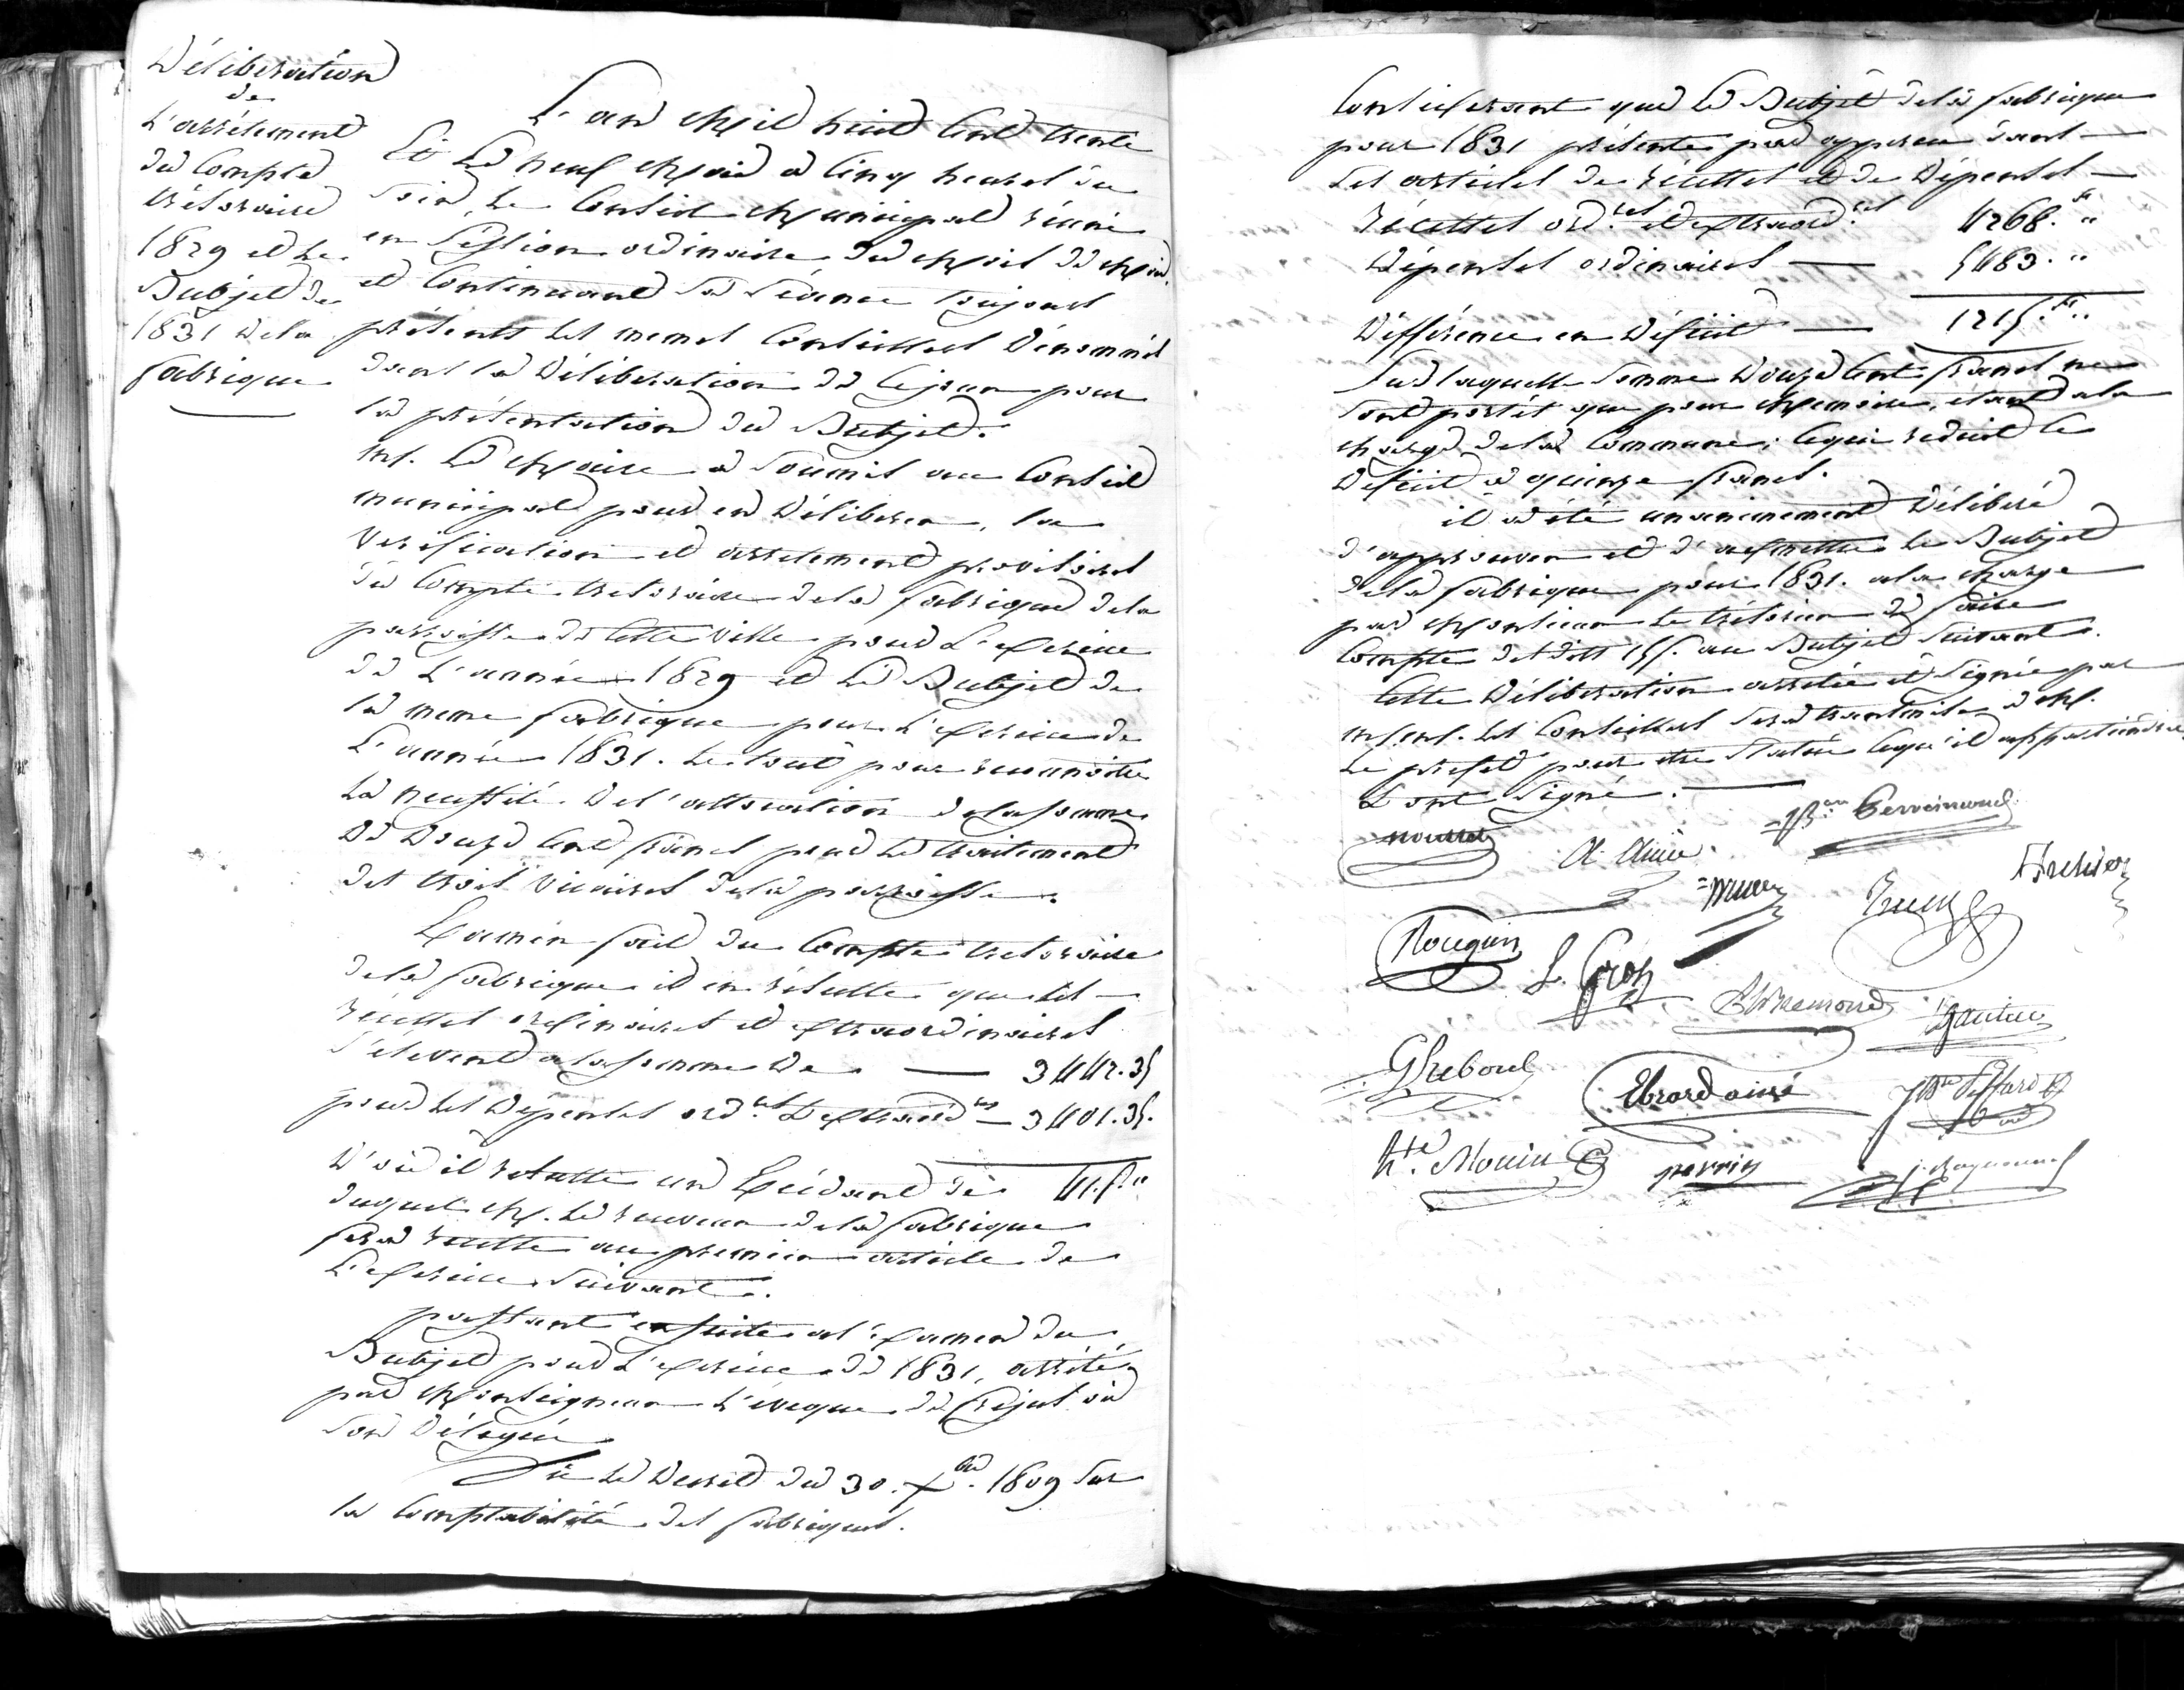 Délibération
de
L'arrêtement
du Compte
trésoraire
1829 et le
Budjet de
1831 de la
fabrique
L'an Mil huit Cent trente
Et le neuf Mai à Cinq heures du
soir, Le Conseil Municipal réuni
en Session ordinaire du Mois de Mai,
et Continuant sa Séance toujours
présents les memes Conseillers dénommés
dans la Délibération de Cejour pour
la présentation du Budjet.
Mr. Le Maire a Soumis au Conseil
municipal pour en Délibérer, la
Verification et arretement provisoires
du Compte tresoraire dela fabrique dela
parroisse de Cette Ville pour L'Exercice
de L'année 1829 et Le Budjet de
la meme fabrique pour L'Exercice de
L'année 1831. Le tout pour reconnoitre
la necessité de l'allocation dela somme
de Douze Cent francs pour le traitement
des trois Vicaires dela parroisse.
Examen fait du Compte tresoraire
dela fabrique il en résulte que les
récettes ordinaires et extraordinaires
s'élevent ala somme De — 3442.35
pour les Dépenses ord.res & extraord.res — 3401.35.
D'où il résulte un Excédant de 41.f "
duquel M. le receveur dela fabrique
fera recette au premier article de
L'exercice Suivant.
passant ensuite a l'examen du
Budjet pour L'exercice de 1831, arrêté
par Monseigneur L'éveque de frejus ou
son Délégué
Vu le Decret du 30. Xbre. 1809 Sur
la Comptabilité des fabriques.
Considerant que le Budjet dela fabrique
pour 1831 présente par apperçu dans
Les articles de récettes et de Dépenses —
récettes ord.res et extraord.res 4268.f "
Dépenses ordinaires — 5483. "
Différence en Déficit — 1215.f "
Sur laquelle Somme Douze Cent francs ne
sont portés que pour Memoire, étant ala
charge dela Commune; Cequi reduit le
Déficit à quinze francs.
il a été unanimement Délibéré
d'approuver et d'admettre le Budjet
dela fabrique pour 1831. ala charge
par Monsieur le trésorier de faire
Compte desdits 15f. au Budjet Suivant.
Cette Délibération arretée et Signée par
les Conseillers sera transmise à M.
Le prefet pour etre Statué Cequ'il appartiendra
& ont Signé. —
Rougin
L. Gros
Gautier
G Reboul
Ebrard ainé
hte. Mouin
perrin